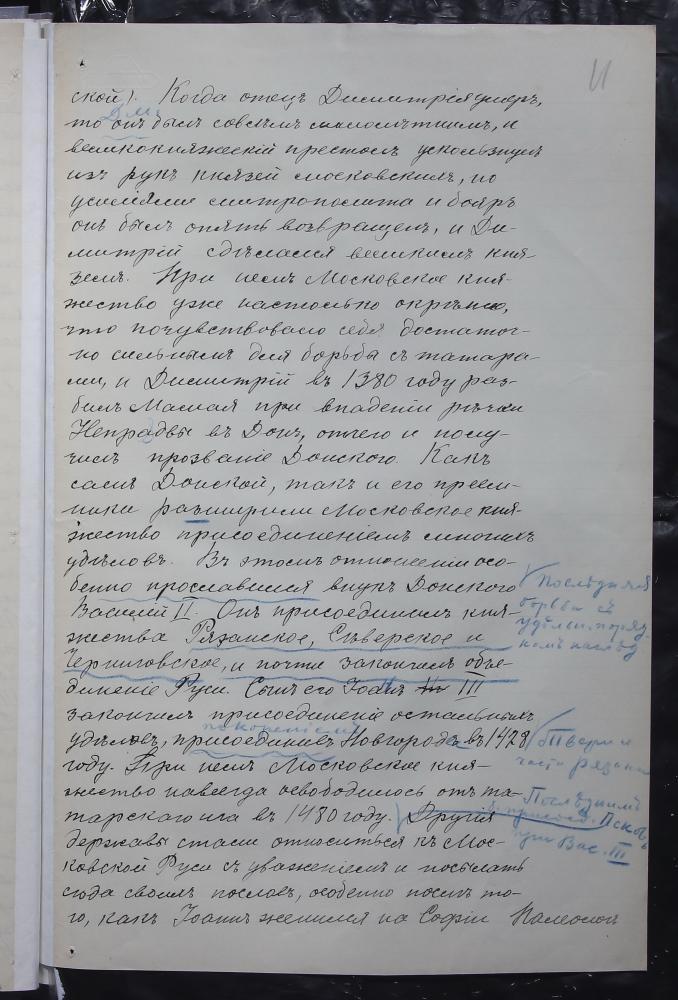 11
ской). Когда отецъ Димитрія умеръ,
Дм.
то онъ былъ совсѣмъ малолѣтнимъ, и
великокняжескій престолъ ускользнулъ
изъ рукъ князей московскихъ, но
усиліями митрополита и бояръ
онъ былъ опять возвращенъ, и Ди-
митрій сдѣлался великимъ кня-
земъ. При немъ Московское кня-
жество уже настолько окрѣпло,
что почувствовало себя достаточ-
но сильнымъ для борьбы съ татара-
ми, и Димитрій въ 1380 году раз-
билъ Мамая при впаденіи рѣчки
Непрядвы въ Донъ, отчего и полу-
чилъ прозваніе Донского. Какъ
самъ Донской, такъ и его преем-
ники расширили Московское кня-
жество присоединеніемъ многихъ
удѣловъ. Въ этомъ отношеніи осо-
бенно прославился внукъ Донского
Василій II. Онъ присоединилъ кня-
жества Рязанское, Сѣверское и
Черниговское, и почти закончилъ объе-
диненіе Руси. Сынъ его Іоаннъ III
закончилъ присоединеніе остальныхъ
покореніемъ
удѣловъ, присоединивъ Новгородъ въ 1478
году. При немъ Московское кня-
жество навсегда освободилось отъ та-
тарскаго ига въ 1480 году. Другія
державы стали относиться къ Мос-
ковской Руси съ уваженіемъ и посылать
сюда своихъ пословъ, особенно послѣ то-
го, какъ Іоаннъ женился на Софіи Палеолог
Послѣдняя
борьба съ
удѣльн. поряд-
комъ
Твери и
части рязани
Послѣднимъ
присоед. Псковъ
при Вас. III